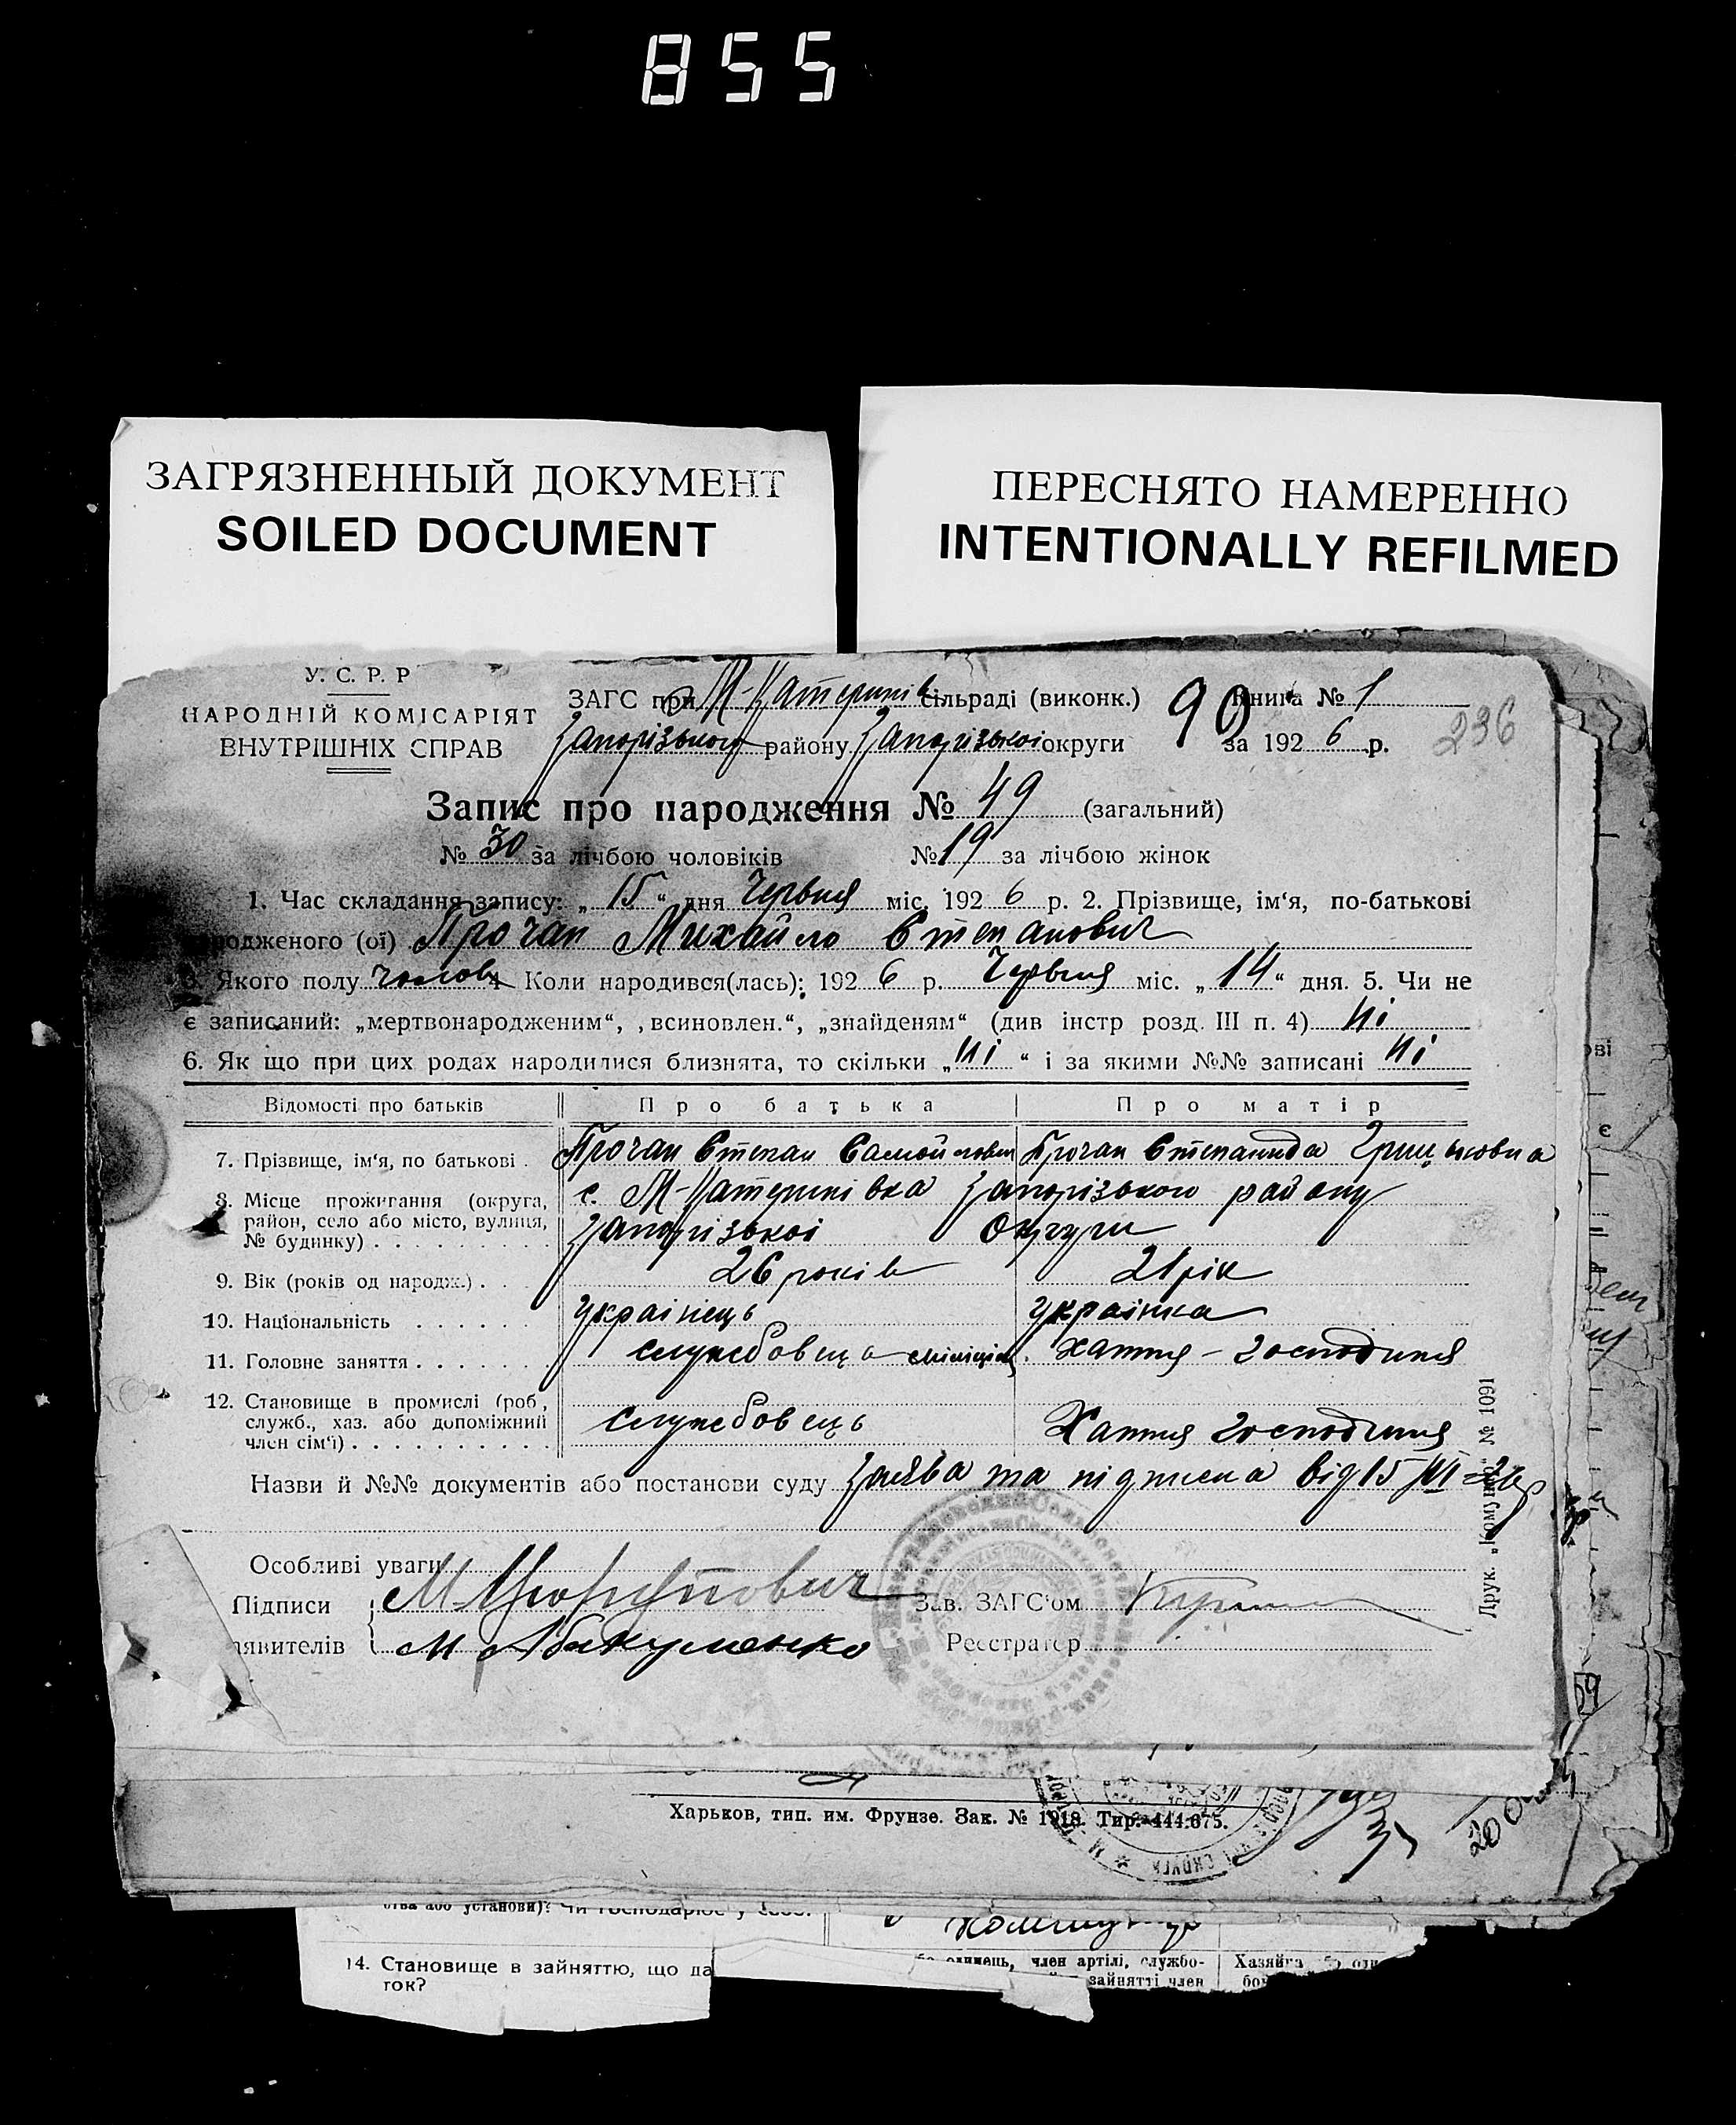 855
ЗАГРЯЗНЕННЫЙ ДОКУМЕНТ
SOILED DOCUMENT
ПЕРЕСНЯТО НАМЕРЕННО
INTENTIONALLY REFILMED
У. С. Р. Р
НАРОДНІЙ КОМІСАРІЯТ
ВНУТРІШНІХ СПРАВ
ЗАГС при М-Катеринів сільраді (виконк.) 90 Книга № 1
Запорізького району Запорізькоі округи за 192 6 р. 236
Запис про народження № 49 (загальний)
№ 30 за лічбою чоловіків № 19 за лічбою жінок
1. Час складання запису: „ 15 “ дня Червня міс. 192 6 р. 2. Прізвище, ім'я, по-батькові
родженого (ої) Прочан Михайло Степанович
3. Якого полу чолов 4 Коли народився(лась): 192 6 р. Червня міс. „ 14 “ дня. 5. Чи не
є записаний: „мертвонародженим“, „всиновлен.“, „знайденям“ (див інстр розд. III п. 4) ні
6. Як що при цих родах народилися близнята, то скільки „ ні “ і за якими №№ записані ні
Відомості про батьків Про батька Про матір
7. Прізвище, ім'я, по батькові . Прочан Степан Самойлович Прочан Степанида Грицьковна
8. Місце проживання (округа, район, село або місто, вулиця, № будинку) . . . . . . . . . с. М-Катеринівка Запорізького району
Запорізькоі Округи
9. Вік (років од народж.) . 26 років 21 рік
10. Національність . . . . . . Украінець Украінка
11. Головне заняття . . . . . . . міліціи. Хатня - господиня
12. Становище в промислі (роб, служб., хаз. або допоміжний член сім'ї) . . . . . . . . . . Службовець Хатня господиня
Назви й №№ документів або постанови суду Заява та підписка від 15/VI-26р
Особливі уваги
Підписи Зав. ЗАГС'ом
аявителів М Абакуменко Реєстратор
Друк. „Комунар“ № 1091
Харьков, тип. им. Фрунзе. Зак. № 1918. Тир. 444.675.
ства або установи)? Чи господарює у
14. Становище в зайняттю, що да
ток?
одинець, член артілі, службо-
зайнятті член
Хазяйка